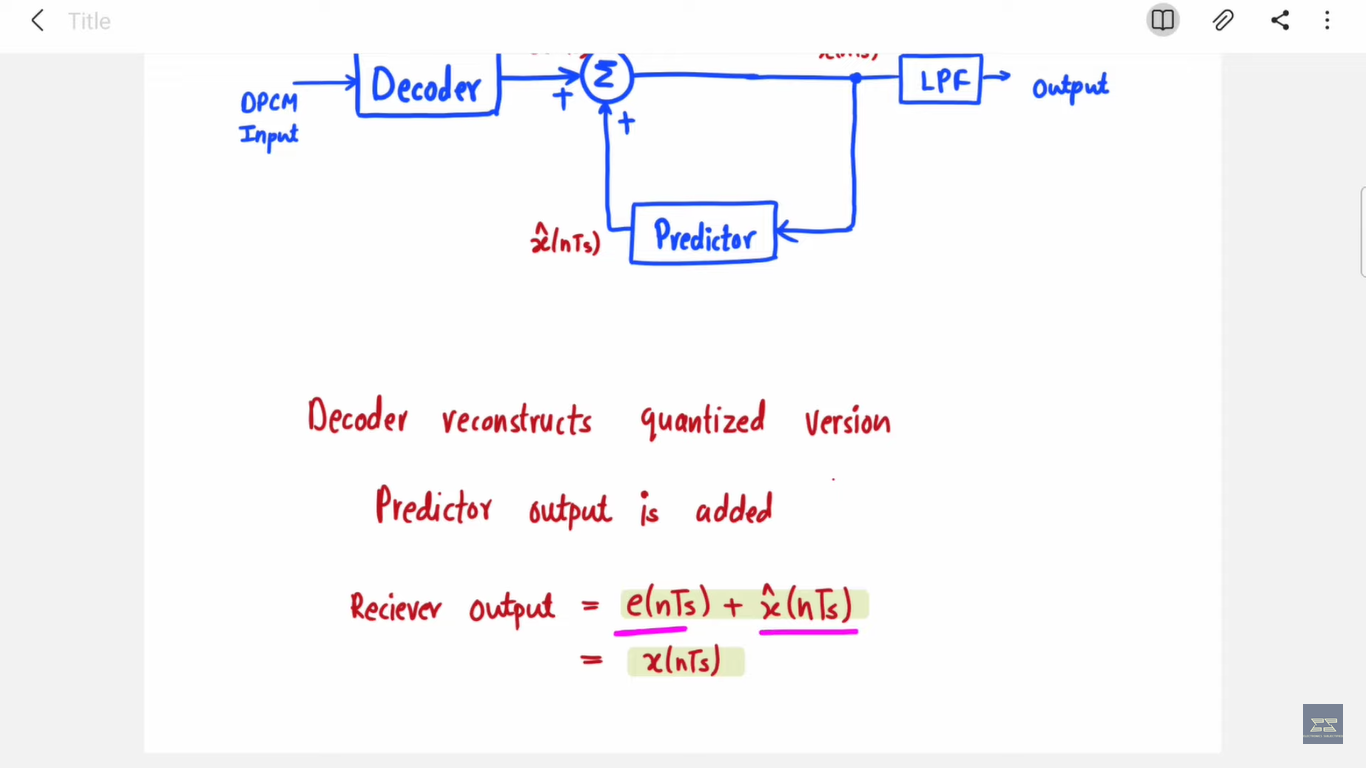 Title
DPCM
Input
Decoder
+
Σ
+
LPF
Output
x̂(nTs)
Predictor
Decoder reconstructs quantized version
Predictor output is added
Reciever output = e(nTs) + x̂(nTs)
= x(nTs)